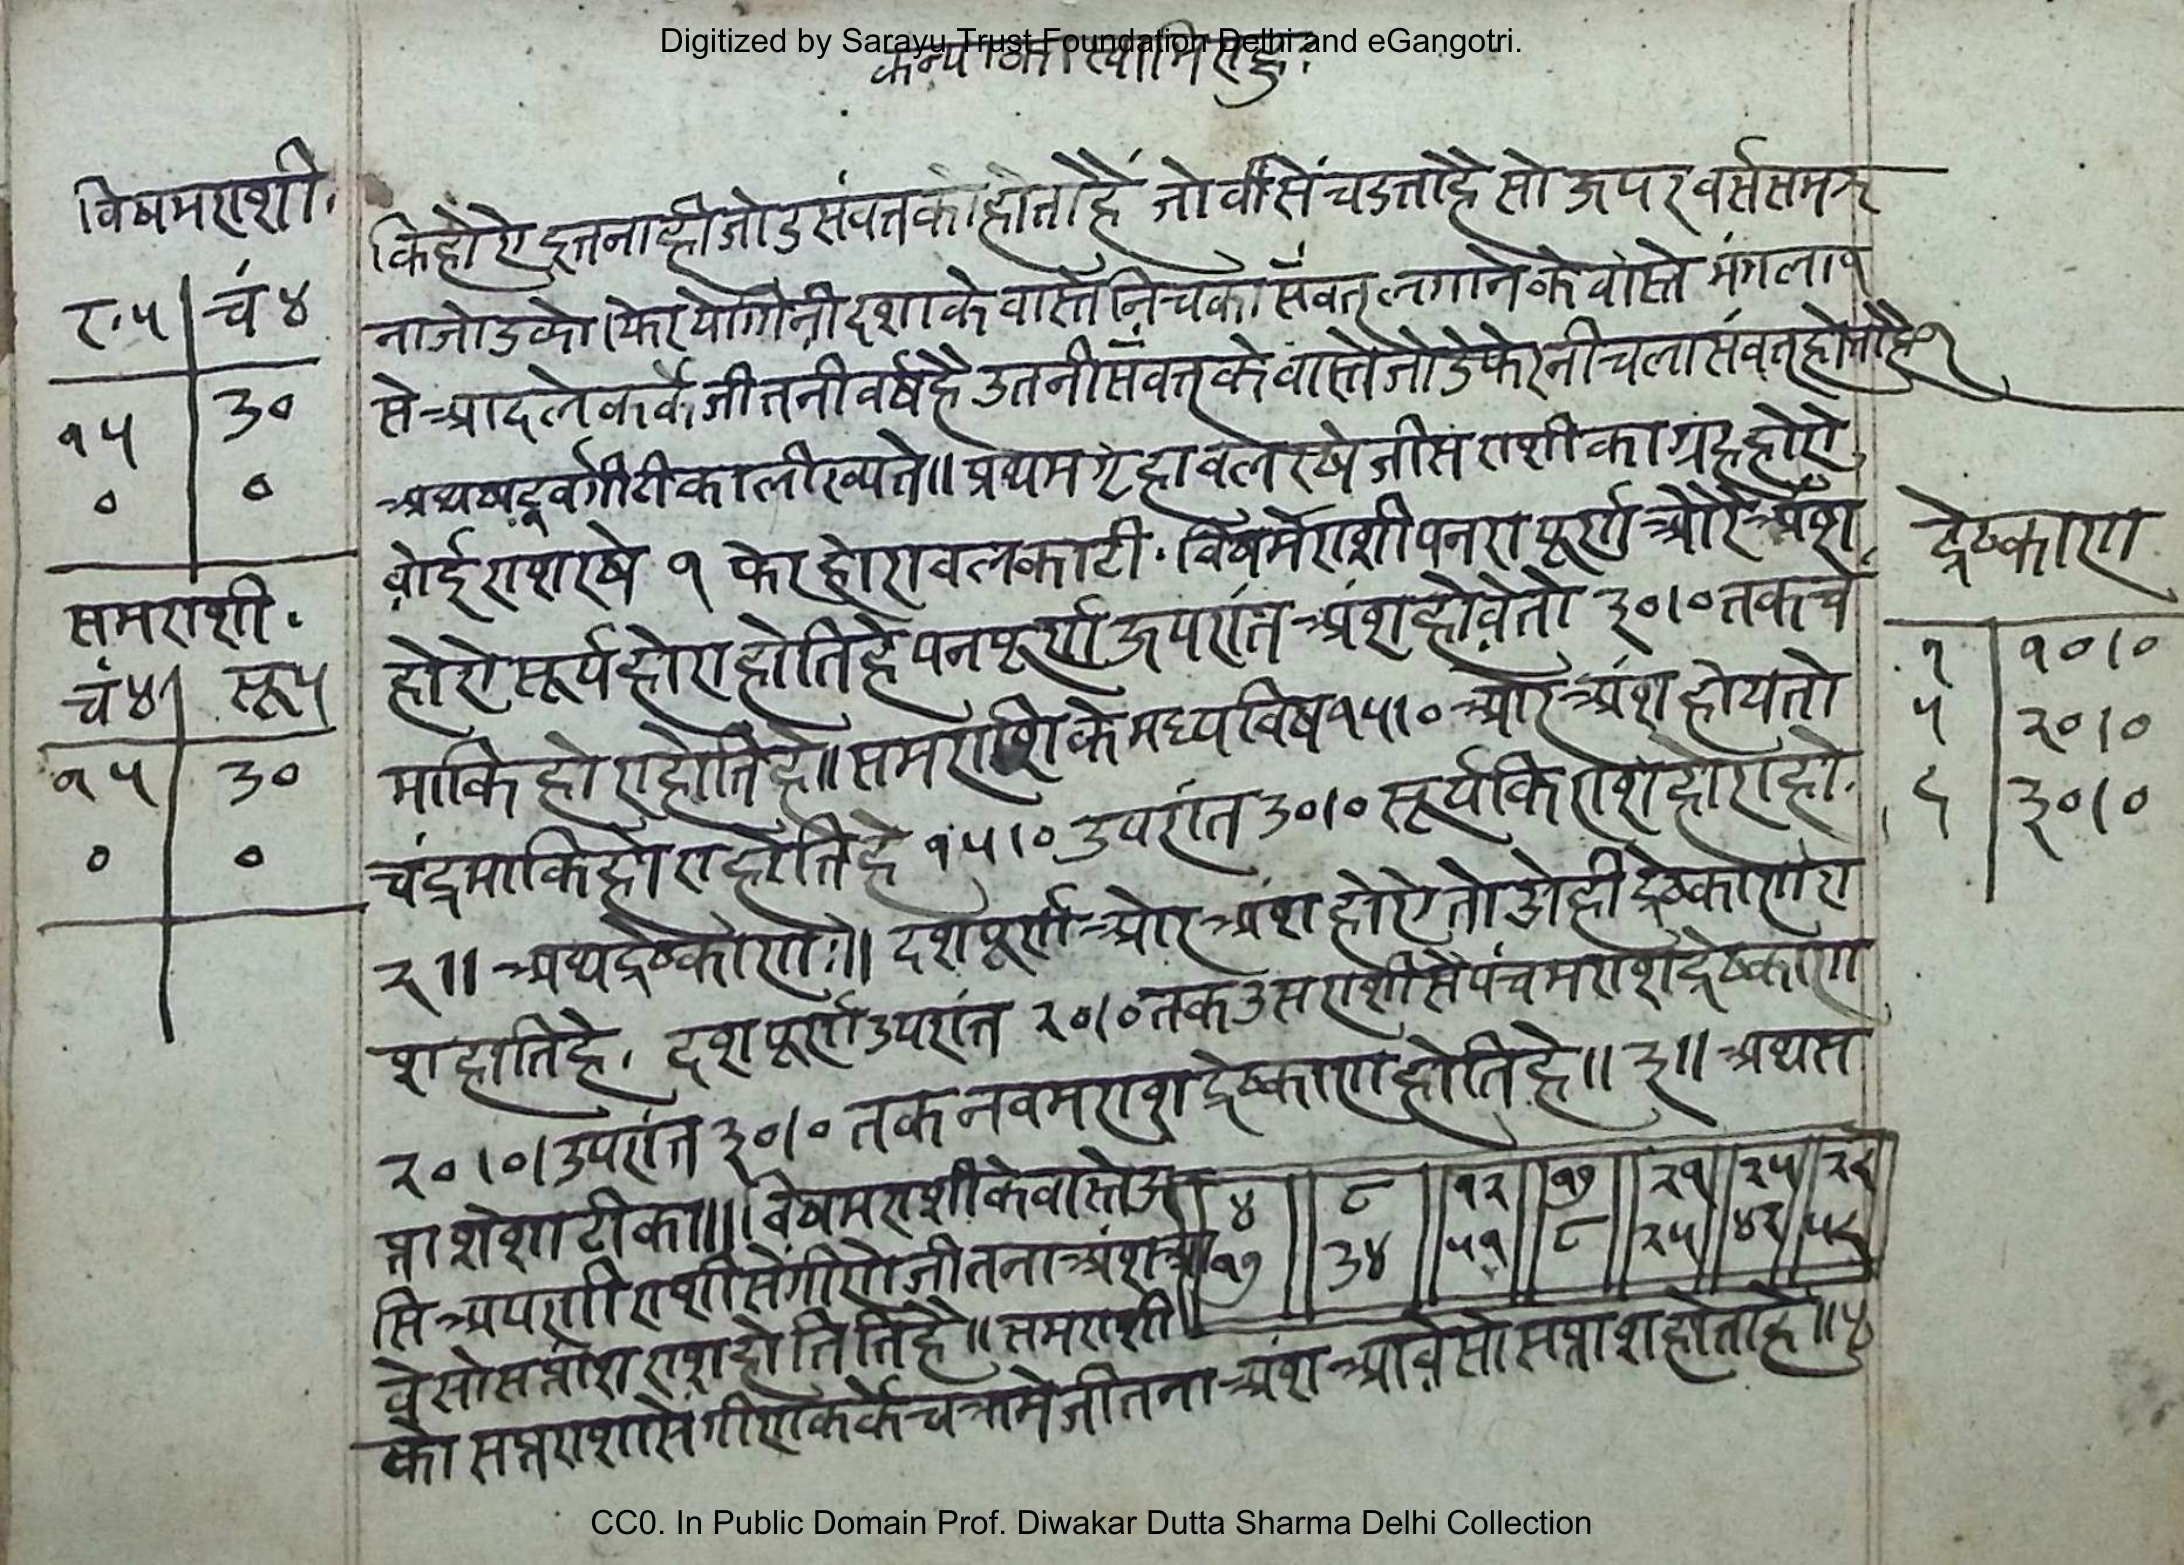 Digitized by Sarayu Trust Foundation Delhi and eGangotri.
कन्याका स्वामि राहु:
विषमराशी.
र.५ चं ४
१५ ३०
० ०
समराशी.
चं४ सू५
१५ ३०
० ०
किहोऐ इतनाही जोड संवतको होताहैं जो वीसें चडताहै सो ऊपर वर्स समत्र
ना जोडको फेर योगीनी दशाके वास्ते निचका संवत् लगानेके वास्ते मंगला१
से आदलेकर्के जीतनी वर्षहै उतनी संवत्तके वास्ते जोडे फेर नीचला संवत् होताहै१
अथ षड्वर्गीटीका लीख्यते॥ प्रथम गृहावल रखे जीस राशीका ग्रह होऐ
वोई राश रषे १ फेर होरावल काटी. विषमेराशी पनरा पूर्ण ओरे अंश
होऐ सूर्य होरा होतिहे पनपूर्ण ऊपरांत अंश होवेतो ३०।० तक चं
माकि होरा होतिहे॥ समराशिके मध्य विष १५।० ओर अंश होयतो
चंद्रमाकि होरा होतिहे १५।० उपरांत ३०।० सूर्यकि राश होरा हो.
२॥ अथ द्रेष्काण:॥ दश पूर्ण ओर अंश होऐतो ओही द्रेष्काण रा
श होतिहे. दश पूर्ण उपरांत २०।० तक उस राशीसे पंचम राश द्रेष्काण
२०।०। उपरांत ३०।० तक नवम राश द्रेष्काण होतिहे॥ ३॥ अथ स
प्तांशेशा टीका॥ विषमराशीके वास्ते उ
सि अपणी राशीसें गीणे जीतना अंश आ
वे सो सप्तांश राश होतितिहै॥ समराशी
को सप्तराशीसें गीणकर्के चक्रामे जीतना अंश आवे सो सप्तांश होताहे॥४
४ ८ १२ १७ २१ २५ २९
१७ ३४ ५१ ८ २५ ४२ ५९
द्रेष्काण
१ १०।०
५ २०।०
९ ३०।०
CC0. In Public Domain Prof. Diwakar Dutta Sharma Delhi Collection